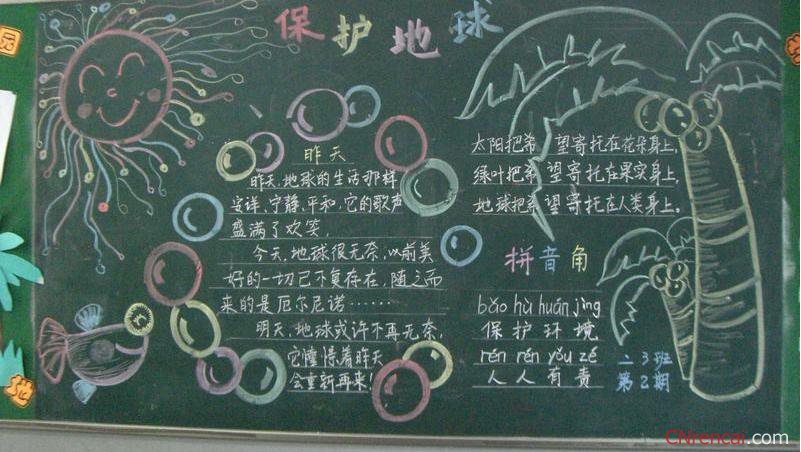 保护地球
昨天
昨天,地球的生活那样
安详,宁静,平和,它的歌声
盛满了欢笑.
今天,地球很无奈,以前美
好的一切已不复存在,随之而
来的是厄尔尼诺……
明天,地球或许不再无奈,
它憧憬着昨天
会重新再来!
太阳把希 望寄托在花朵身上,
绿叶把希 望寄托在果实身上,
地球把希 望寄托在人类身上。
拼音角
bǎo hù huán jìng
保护环境
rén rén yǒu zé
人人有责
二3班
第2期
园
CNrencai.com